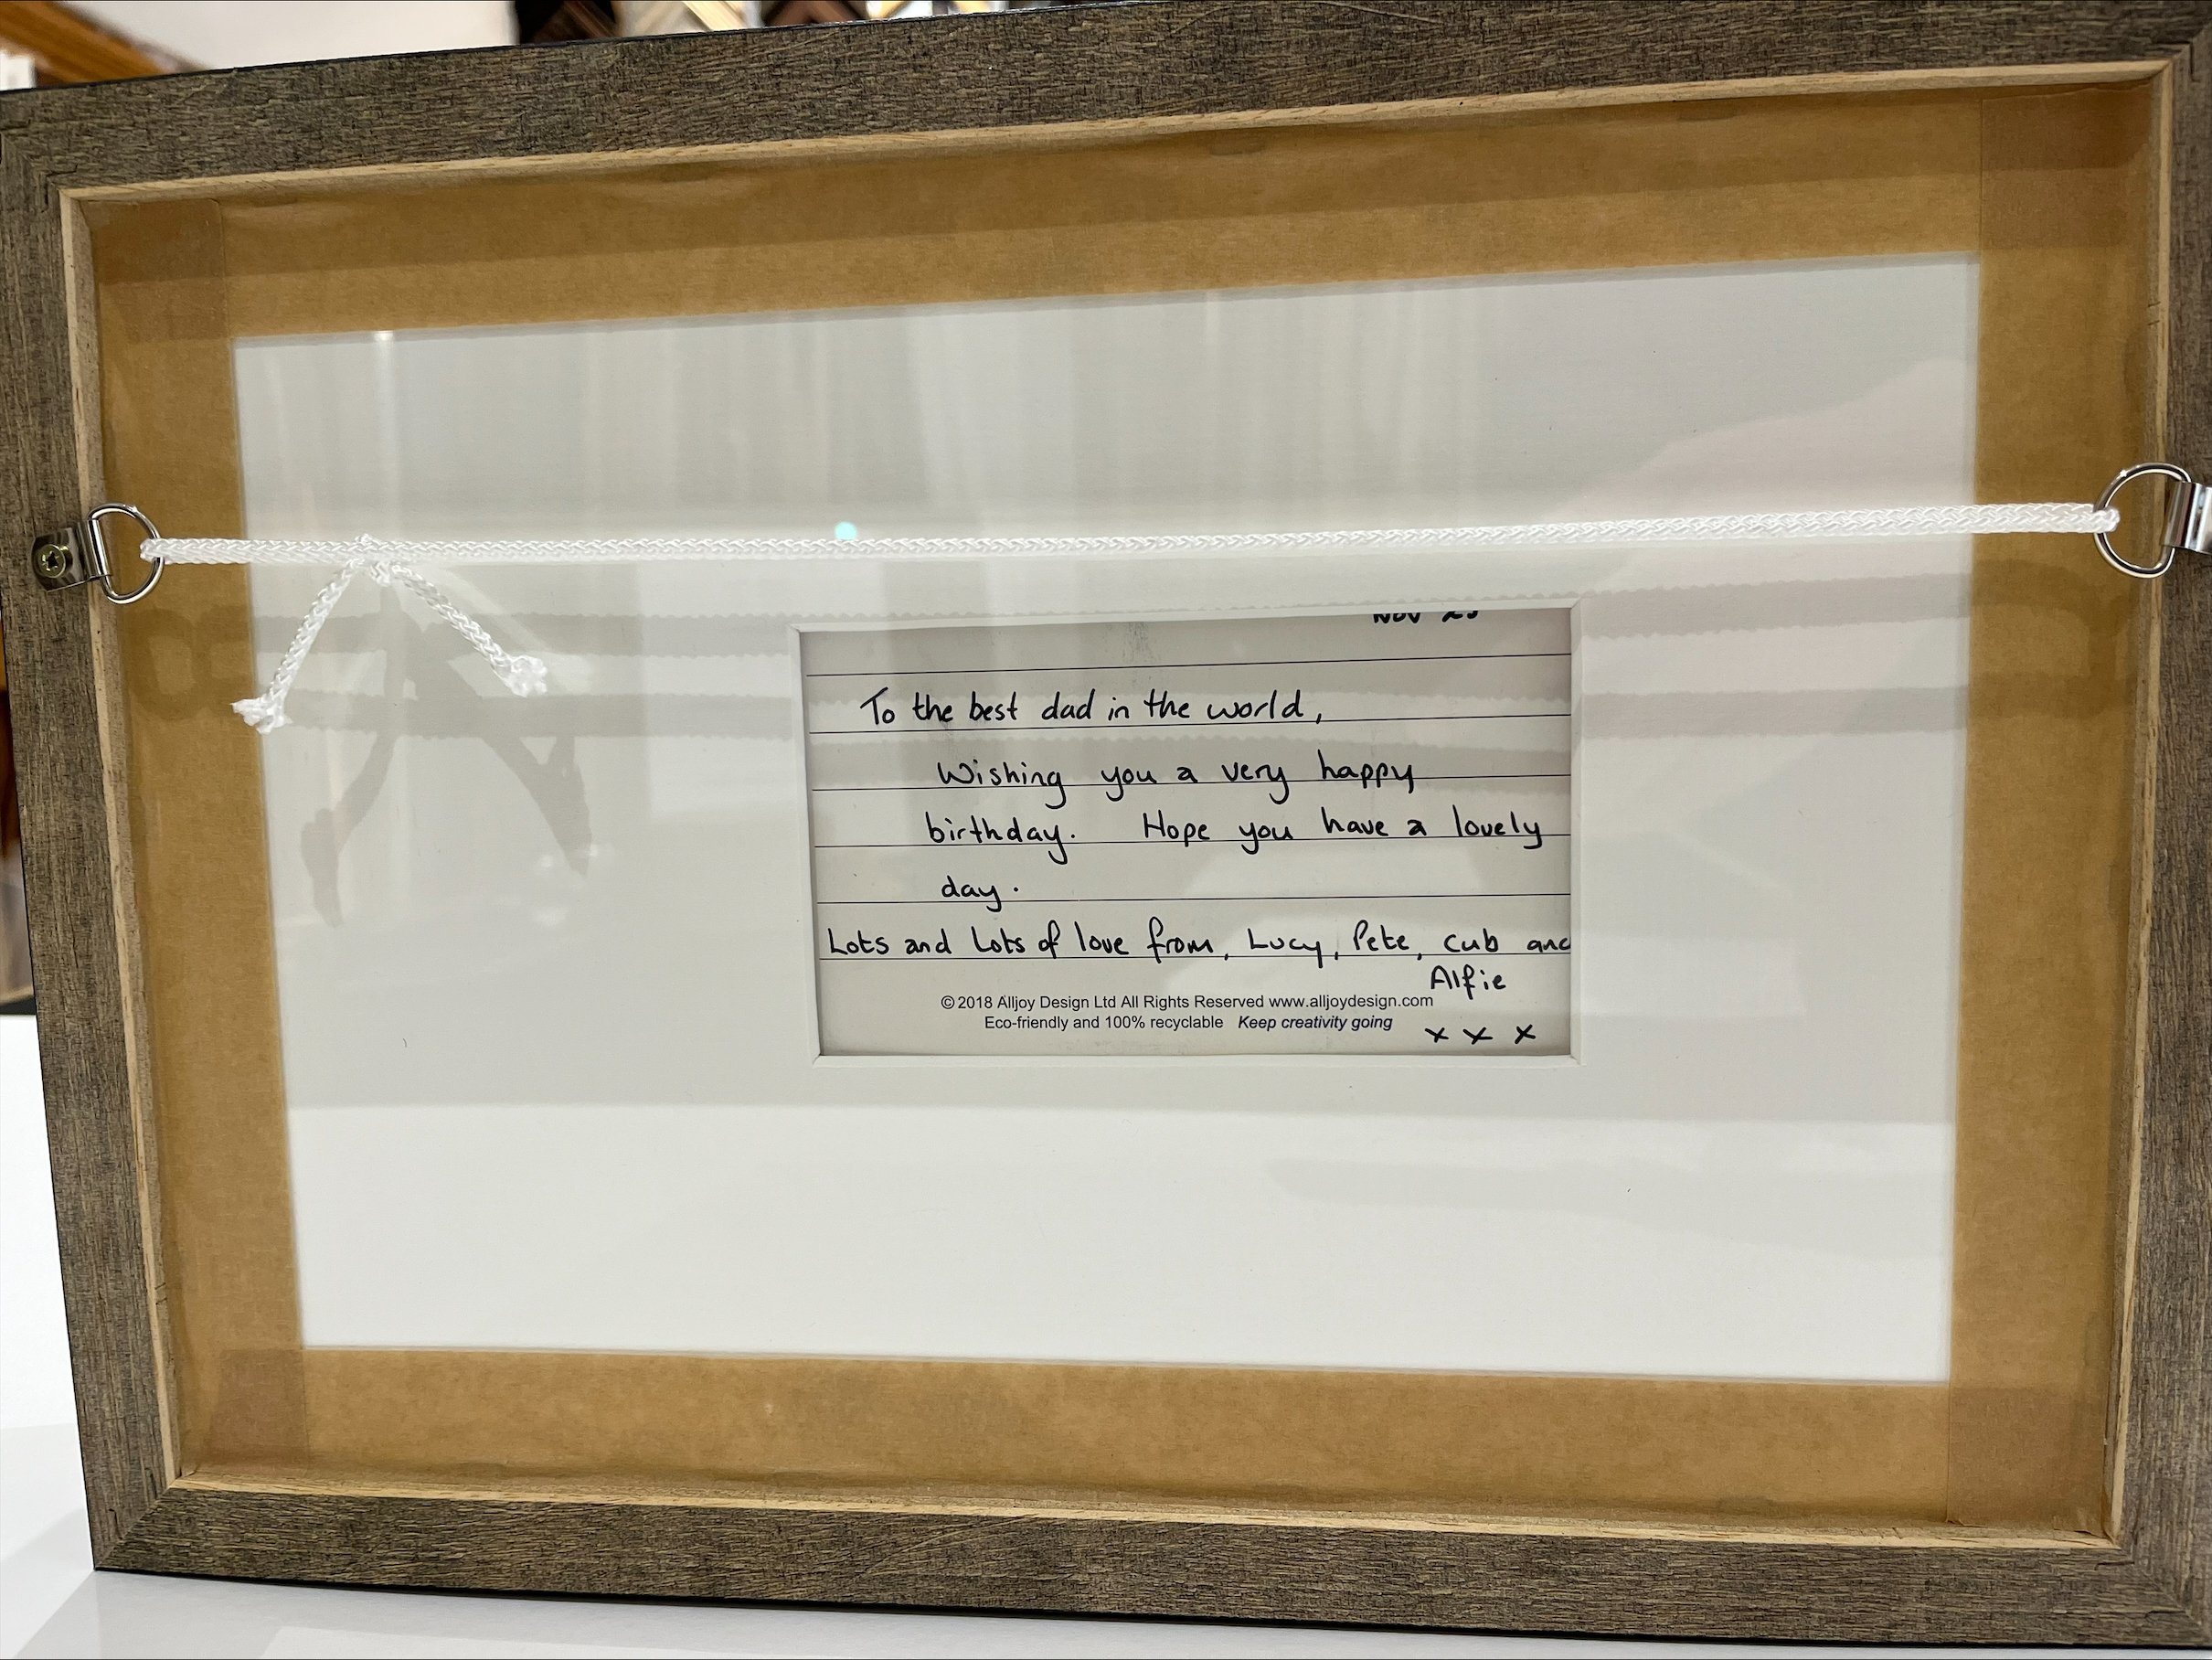 Nov 23
To the best dad in the world,
Wishing you a very happy
birthday. Hope you have a lovely
day.
Lots and Lots of love from, Lucy, Pete, Cub and
Alfie
© 2018 Alljoy Design Ltd All Rights Reserved www.alljoydesign.com
Eco-friendly and 100% recyclable Keep creativity going
x x x